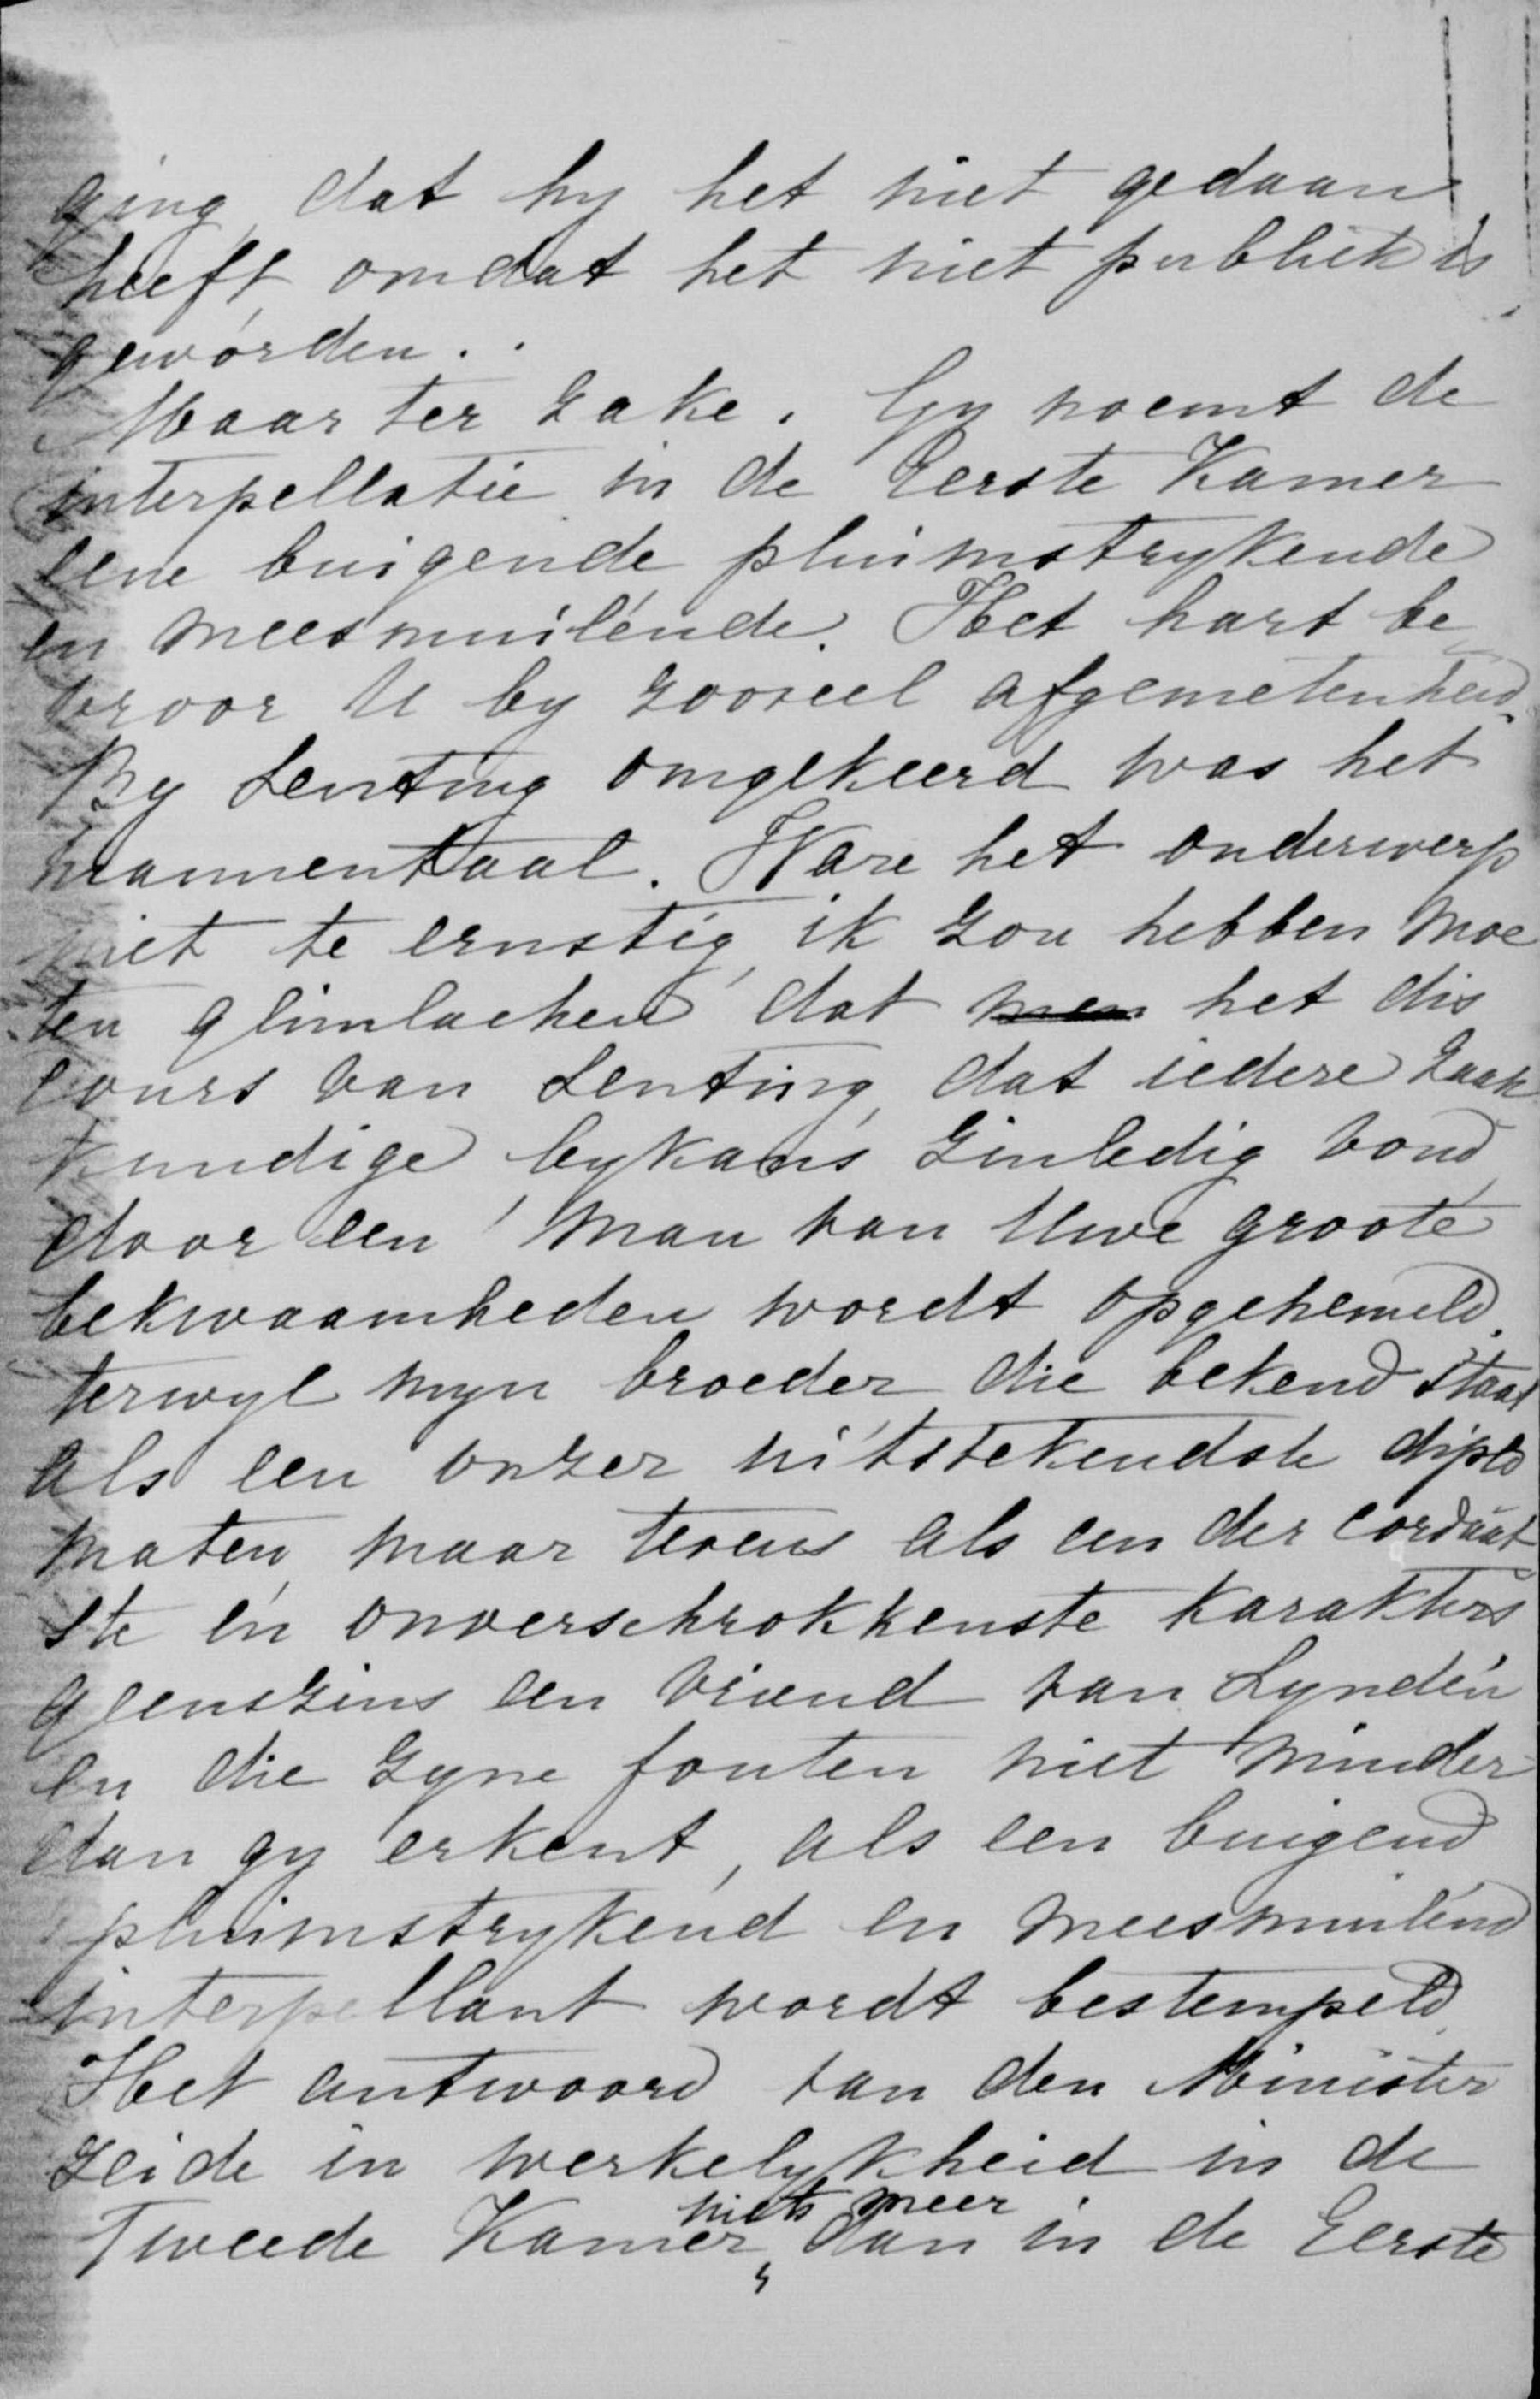 ging, dat hy het niet gedaan
heeft, omdat het niet publiek is
geworden..
Maar ter zake. Gy noemt de
interpellatie in de Eerste Kamer
eene buigende pluimstrykende
en meesmuilende. Het hart be
vroor U by zooveel afgemetenheid.
By Lenting omgekeerd was het
mannentaal. Ware het onderwerp
niet te ernstig, ik zou hebben moe
ten glimlachen dat men het dis
cours van Lenting, dat iedere zaak
kundige bykans zinledig vond,
door een man van Uwe groote
bekwaamheden wordt opgehemeld,
terwyl myn broeder die bekend staat
als een onzer uitstekendste diplo
maten, maar tevens als een der cordaat
ste en onverschrokkenste karakters
geenszins een vriend van Lynden
en die zyne fouten niet minder
dan gy erkent, als een buigend
pluimstrykend en meesmuilend
interpellant wordt bestempeld.
Het antwoord van den Minister
zeide in werkelykheid in de
Tweede Kamer niets meer dan in de Eerste